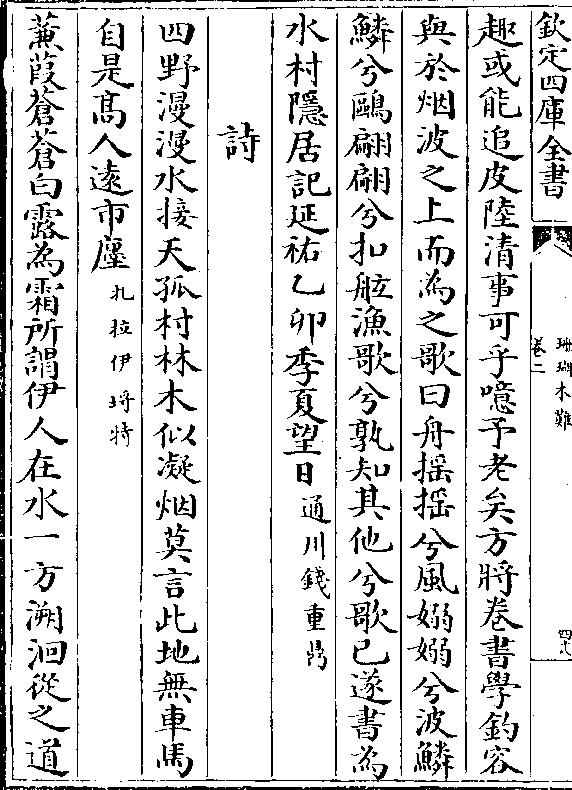 欽定四庫全書
珊瑚木難
卷二
四八
趣或能追皮陸清事可乎噫予老矣方將卷書學釣容
與於烟波之上而為之歌曰舟摇摇兮風嫋嫋兮波鱗
鱗兮鷗翩翩兮扣舷漁歌兮孰知其他兮歌已遂書為
水村隱居記延祐乙卯季夏望日通川錢重鼎
詩
四野漫漫水接天孤村林木似凝烟莫言此地無車馬
自是髙人逺市廛扎拉伊埒特
蒹葭蒼蒼白露為霜所謂伊人在水一方溯洄從之道